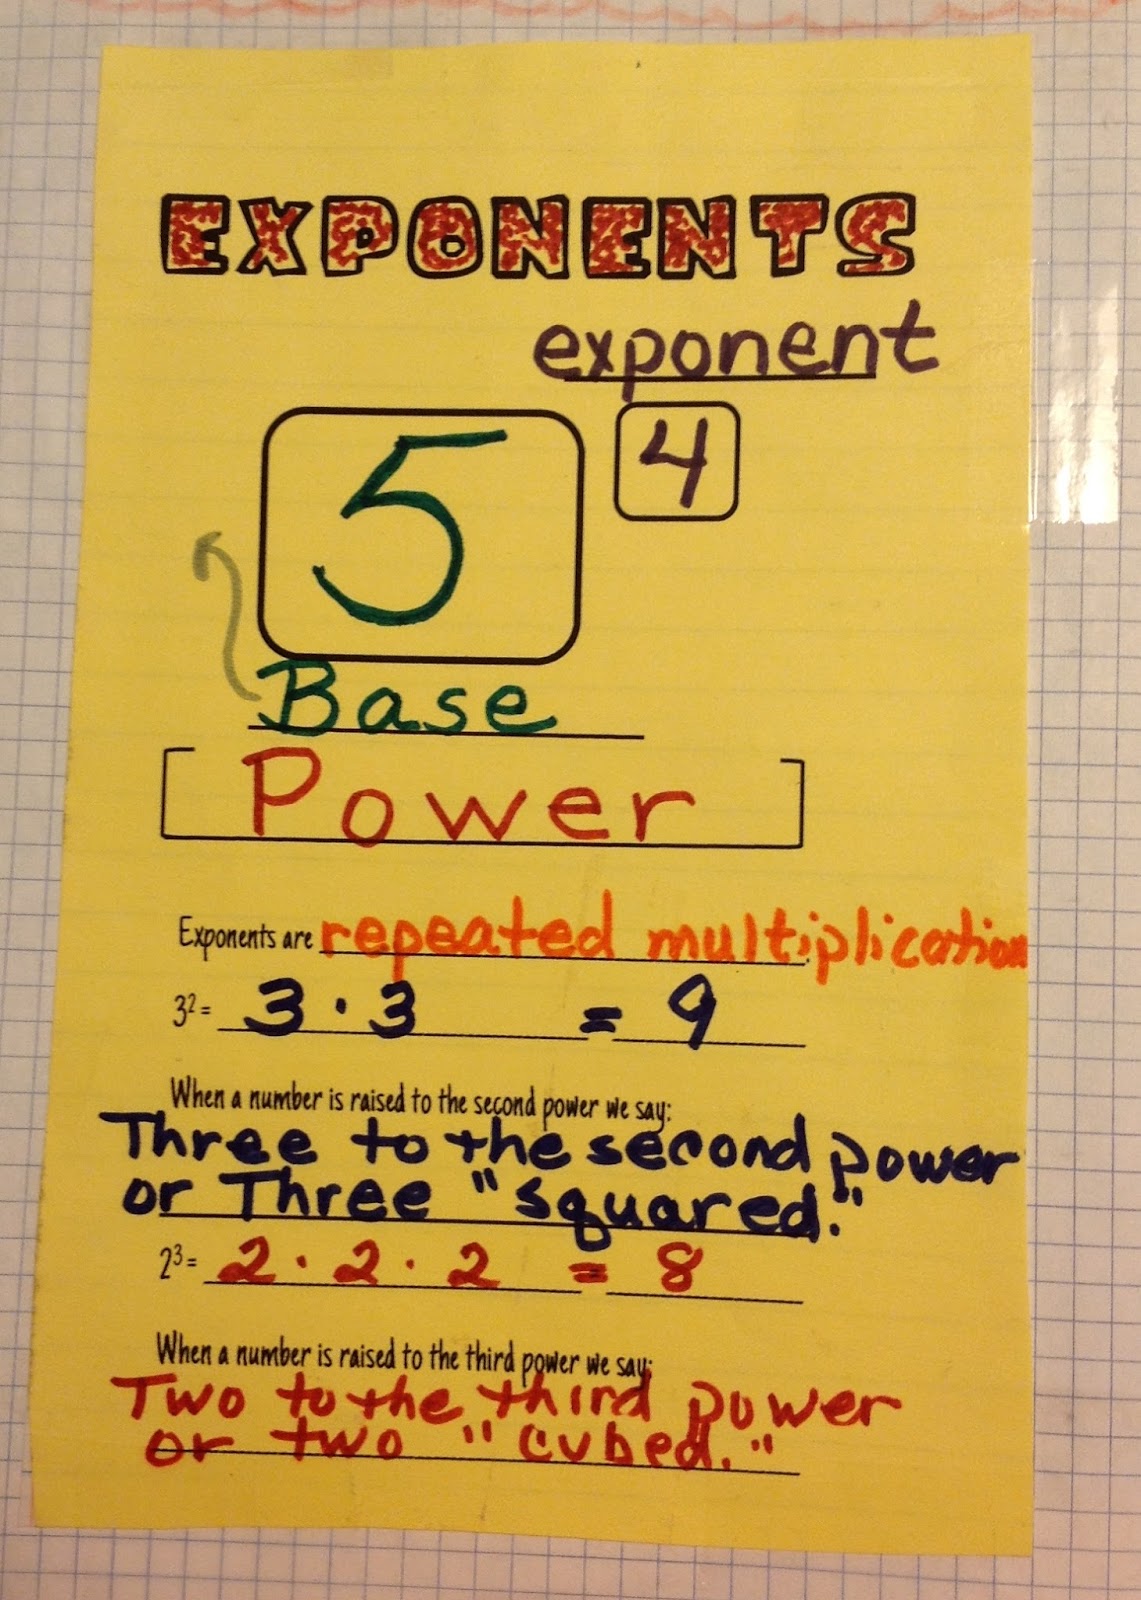 EXPONENTS
exponent
5 4
Base
Power
Exponents are repeated multiplication.
3² = 3 · 3 = 9
When a number is raised to the second power we say:
Three to the second power
or Three "squared."
2³ = 2 · 2 · 2 = 8
When a number is raised to the third power we say:
Two to the third power
or two "cubed."